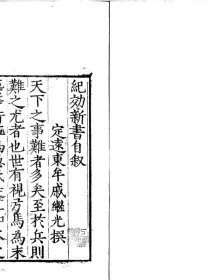 紀効新書自叙
定遠東牟戚繼光撰
天下之事難者多矣至於兵則
難之尤者也世有視弓馬為末